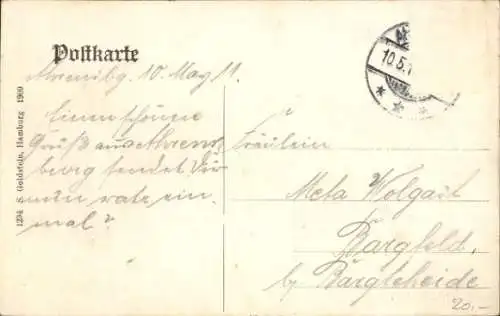 Postkarte
Ahrensbg. 10. May 11.
Einen schönen
Gruß aus Ahrens-
burg sendet Dir
nun rate ein-
mal?
Fräulein
Meta Wolgast
Bargfeld,
b/ Bargteheide
20,-
10.5.1
1294 S. Goldstein, Hamburg 1909